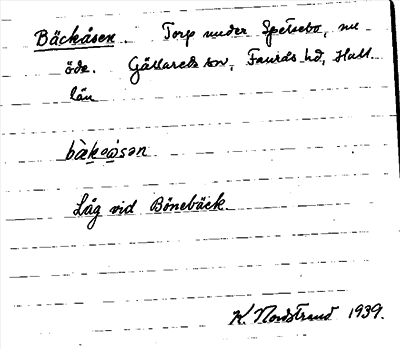 Bäckåsen. Torp under Spetsebo, nu
öde. Gällareds sn, Faurås hd, Hall.
län
bàkåsən
Låg vid Bönebäck.
K. Nordstrand 1939.